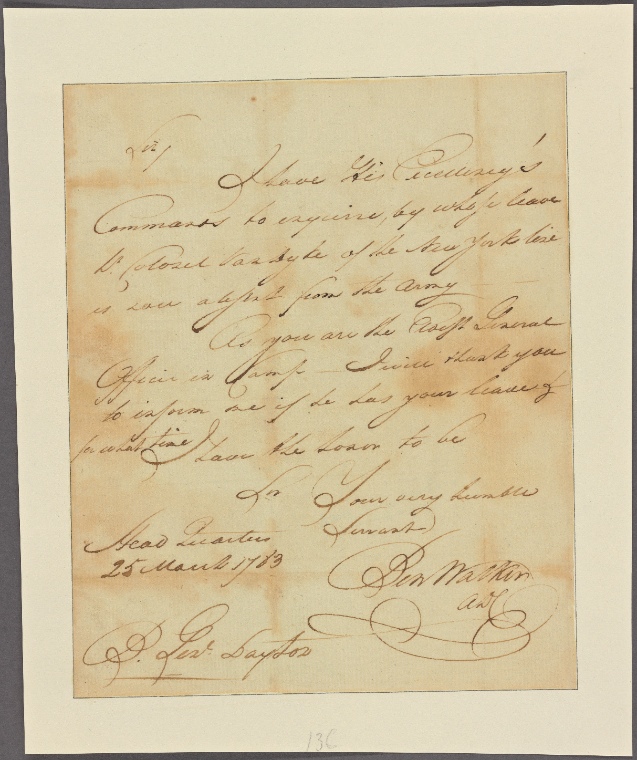 Sir,
I have His Excellency's
Commands to enquire, by whose leave
Lt. Colonel Vandyke of the New York line
is now absent from the Army
As you are the Eldest General
Officer in Camp I will thank you
to inform me if he has your leave &
for what time I have the honor to be
Sir Your very humble
Servant
Head Quarters
25 March 1783
Ben Walker
ADC
B. Genl. Dayton
136